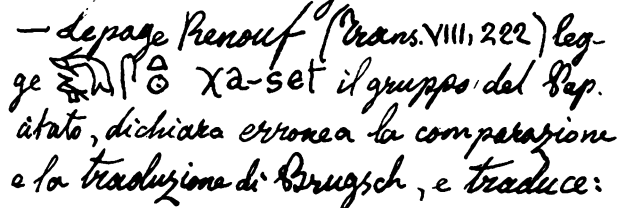 — Lepage Renouf (Trans. VIII, 222) leg-
ge χa-set il gruppo del Pap.
citato, dichiara erronea la comparazione
e la traduzione di Brugsch, e traduce: